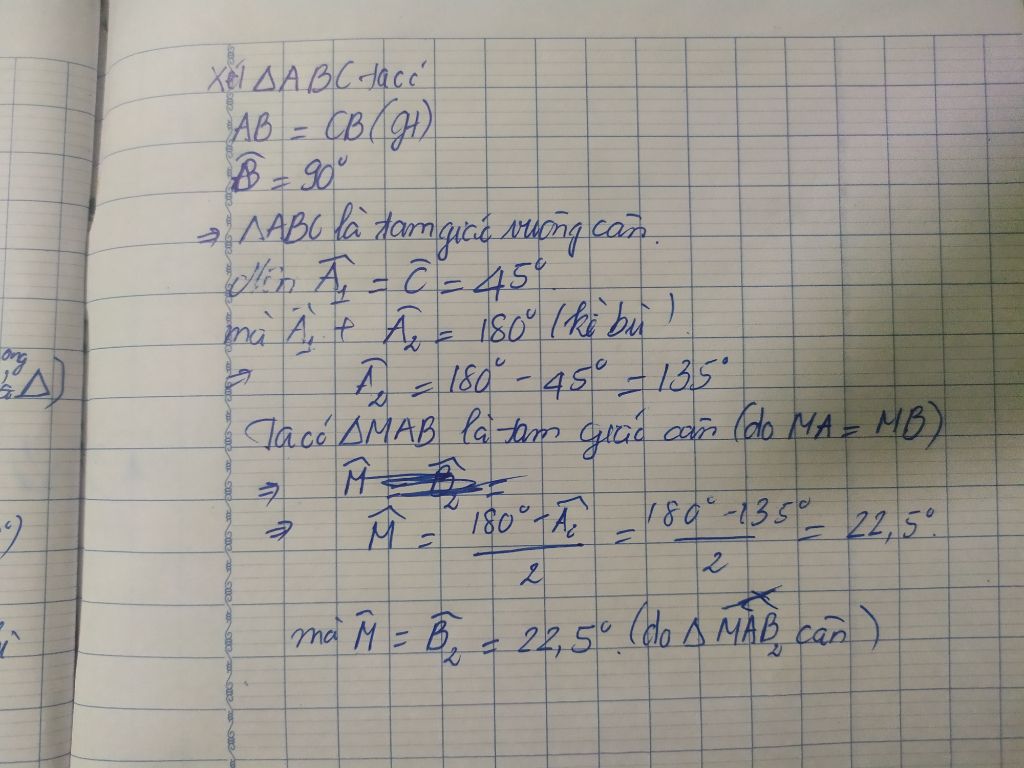 Xét ΔABC ta có
AB = CB (gt)
B̂ = 90°
⇒ ΔABC là tam giác vuông cân.
Nên Â₁ = Ĉ = 45°.
mà Â₁ + Â₂ = 180° (kề bù)
⇒ Â₂ = 180° - 45° = 135°
Ta có ΔMAB là tam giác cân (do MA = MB)
⇒ M̂ = B̂₂ =
⇒ M̂ = (180° - Â₂)/2 = (180° - 135°)/2 = 22,5°.
mà M̂ = B̂₂ = 22,5°. (do Δ MAB₂ cân)
ong
Δ)
°)